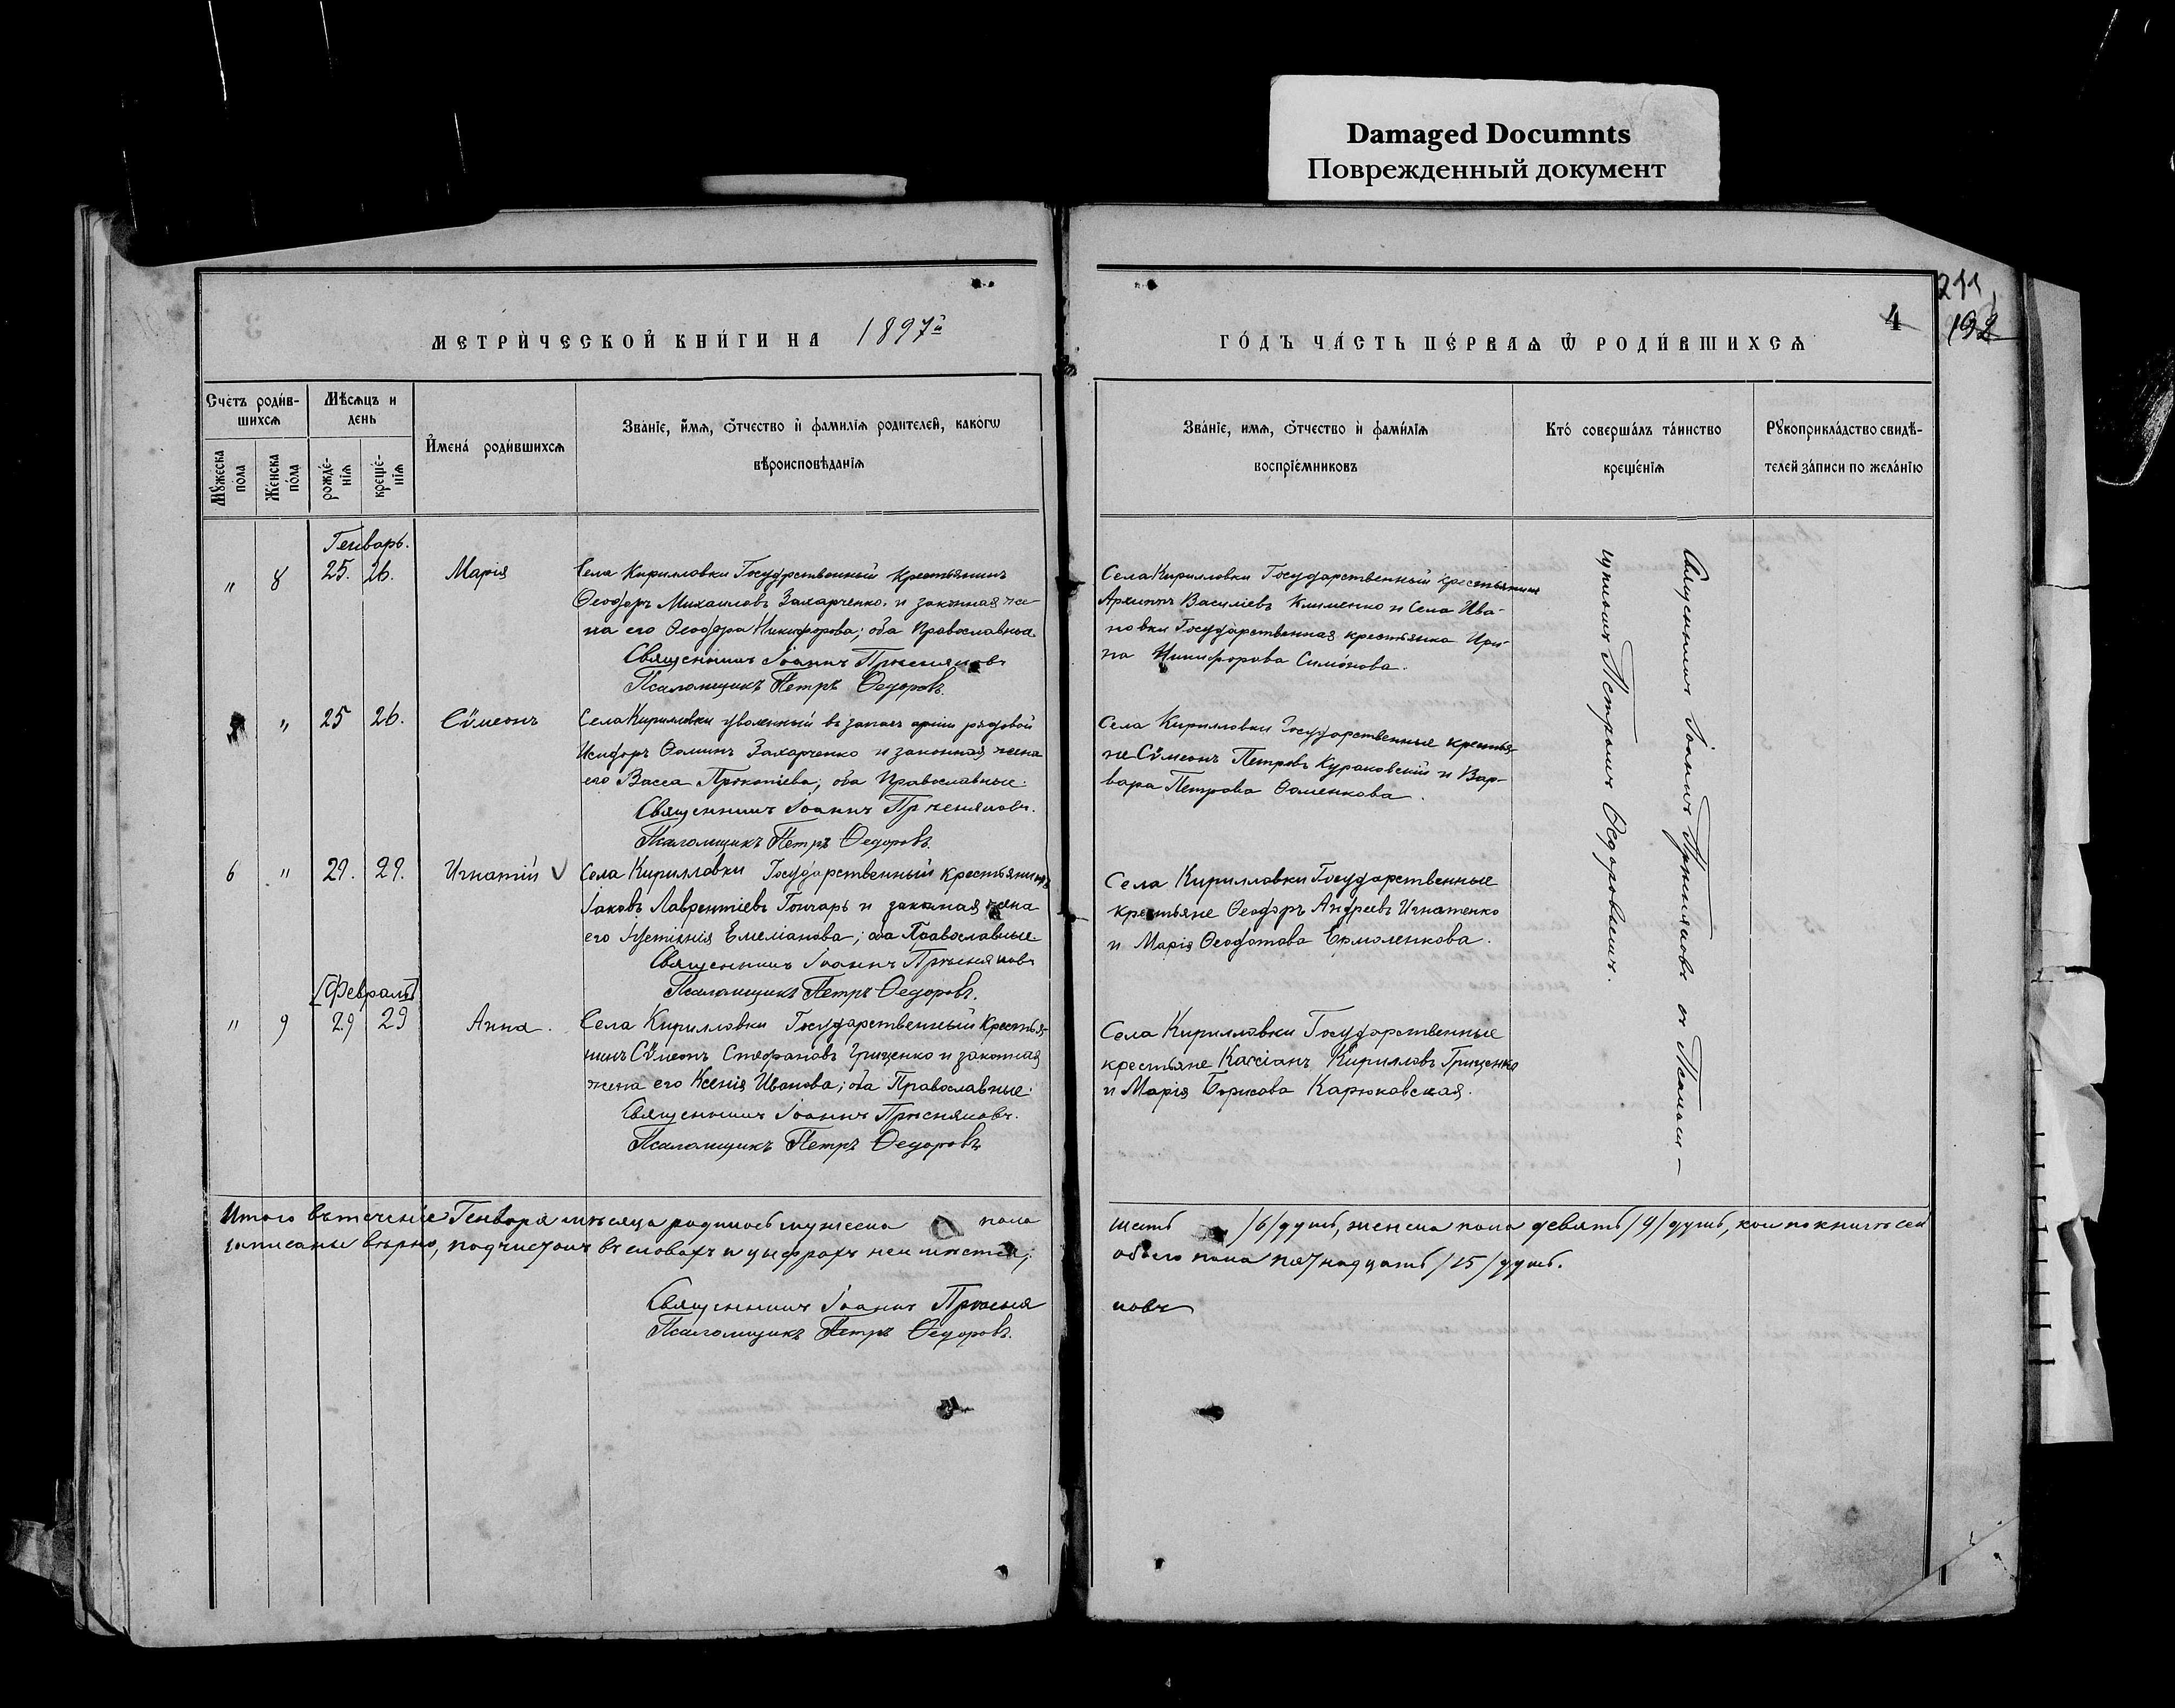 Damaged Documnts
Поврежденный документ
211
192
4
МЕТРИ́ЧЕСКОЙ КНИ́ГИ НА 1897й
ГО́ДЪ ЧА́СТЬ ПЕ́РВАѦ Ѿ РОДИ́ВШИХСѦ
Счетъ роди́в-
шихсѧ
Мѣсѧцъ и
день
Мꙋжеска
пола
Же́нска
по́ла
рожде́-
нїѧ
креще́-
нїѧ
И҆мена̀ роди́вшихсѧ
Зва́нїе, и҆́мѧ, ѻ҆́тчество и҆ фами́лїѧ роди́телей, како́гѡ
вѣроисповѣ́данїѧ
Зва́нїе, имѧ, ѻ҆́тчество и҆ фами́лїѧ
воспрїе́мниковъ
Кто́ соверша́лъ та́инство
креще́нїѧ
Рꙋкоприкла́дство свидѣ́-
телей за́писи по жела́нїю
Генварь.
" 8 25. 26. Марія
Села Кирилловки Государственный Крестьянинъ
Ѳеодоръ Михаиловъ Захарченко, и законная же-
на его Ѳеодора Никифорова; оба Православные.
Священникъ Іоаннъ
Псаломщикъ Петръ Ѳедоровъ.
Села Кирилловки Государственный крестьянинъ
Архиппъ Василіевъ Клименко и Села Ива-
новки Государственная крестьянка Ири-
на Никифорова Симонова.
" 25 26. Сѷмеонъ
Села Кирилловки уволенный въ запасъ арміи рядовой
Исидоръ Ѳоминъ Захарченко и законная жена
его Васса Прокопіева; оба Православные.
Священникъ Іоаннъ
Псаломщикъ Петръ Ѳедоровъ.
Села Кирилловки Государственные крестья-
не Сѷмеонъ Петровъ Кураковскій и Вар-
вара Петрова Ѳоменкова.
6 " 29. 29. Игнатій
Села Кирилловки Государственный Крестьянинъ
Іаковъ Лаврентіевъ Гончаръ и законная жена
его Іустинія Емеліанова; оба Православные
Священникъ Іоаннъ
Псаломщикъ Петръ Ѳедоровъ.
Села Кирилловки Государственные
крестьяне Ѳеодоръ Андреевъ Игнатенко
и Марія Ѳеодотова Ермоленкова.
[Февраль]
" 9 29 29 Анна.
Села Кирилловки Государственный Крестья-
нинъ Сѷмеонъ Стефановъ Гриценко и законная
жена его Ксенія Иванова; оба Православные.
Священникъ Іоаннъ
Псаломщикъ Петръ Ѳедоровъ
Села Кирилловки Государственные
крестьяне Кассіанъ Кирилловъ Гриценко
и Марія Борисова Карюковская.
Священникъ Іоаннъ съ Псалом-
щикомъ Петромъ Ѳедоровымъ.
Итого въ теченіе Генваря мѣсяца родилось мужеска пола
шесть /6/ душъ, женска пола девять /9/ душъ, кои по книгѣ сей
записаны вѣрно, подчистокъ въ словахъ и цифрахъ не имѣется;
обоего пола пятнадцать /15/ душъ.
Священникъ Іоаннъ
Псаломщикъ Петръ Ѳедоровъ.